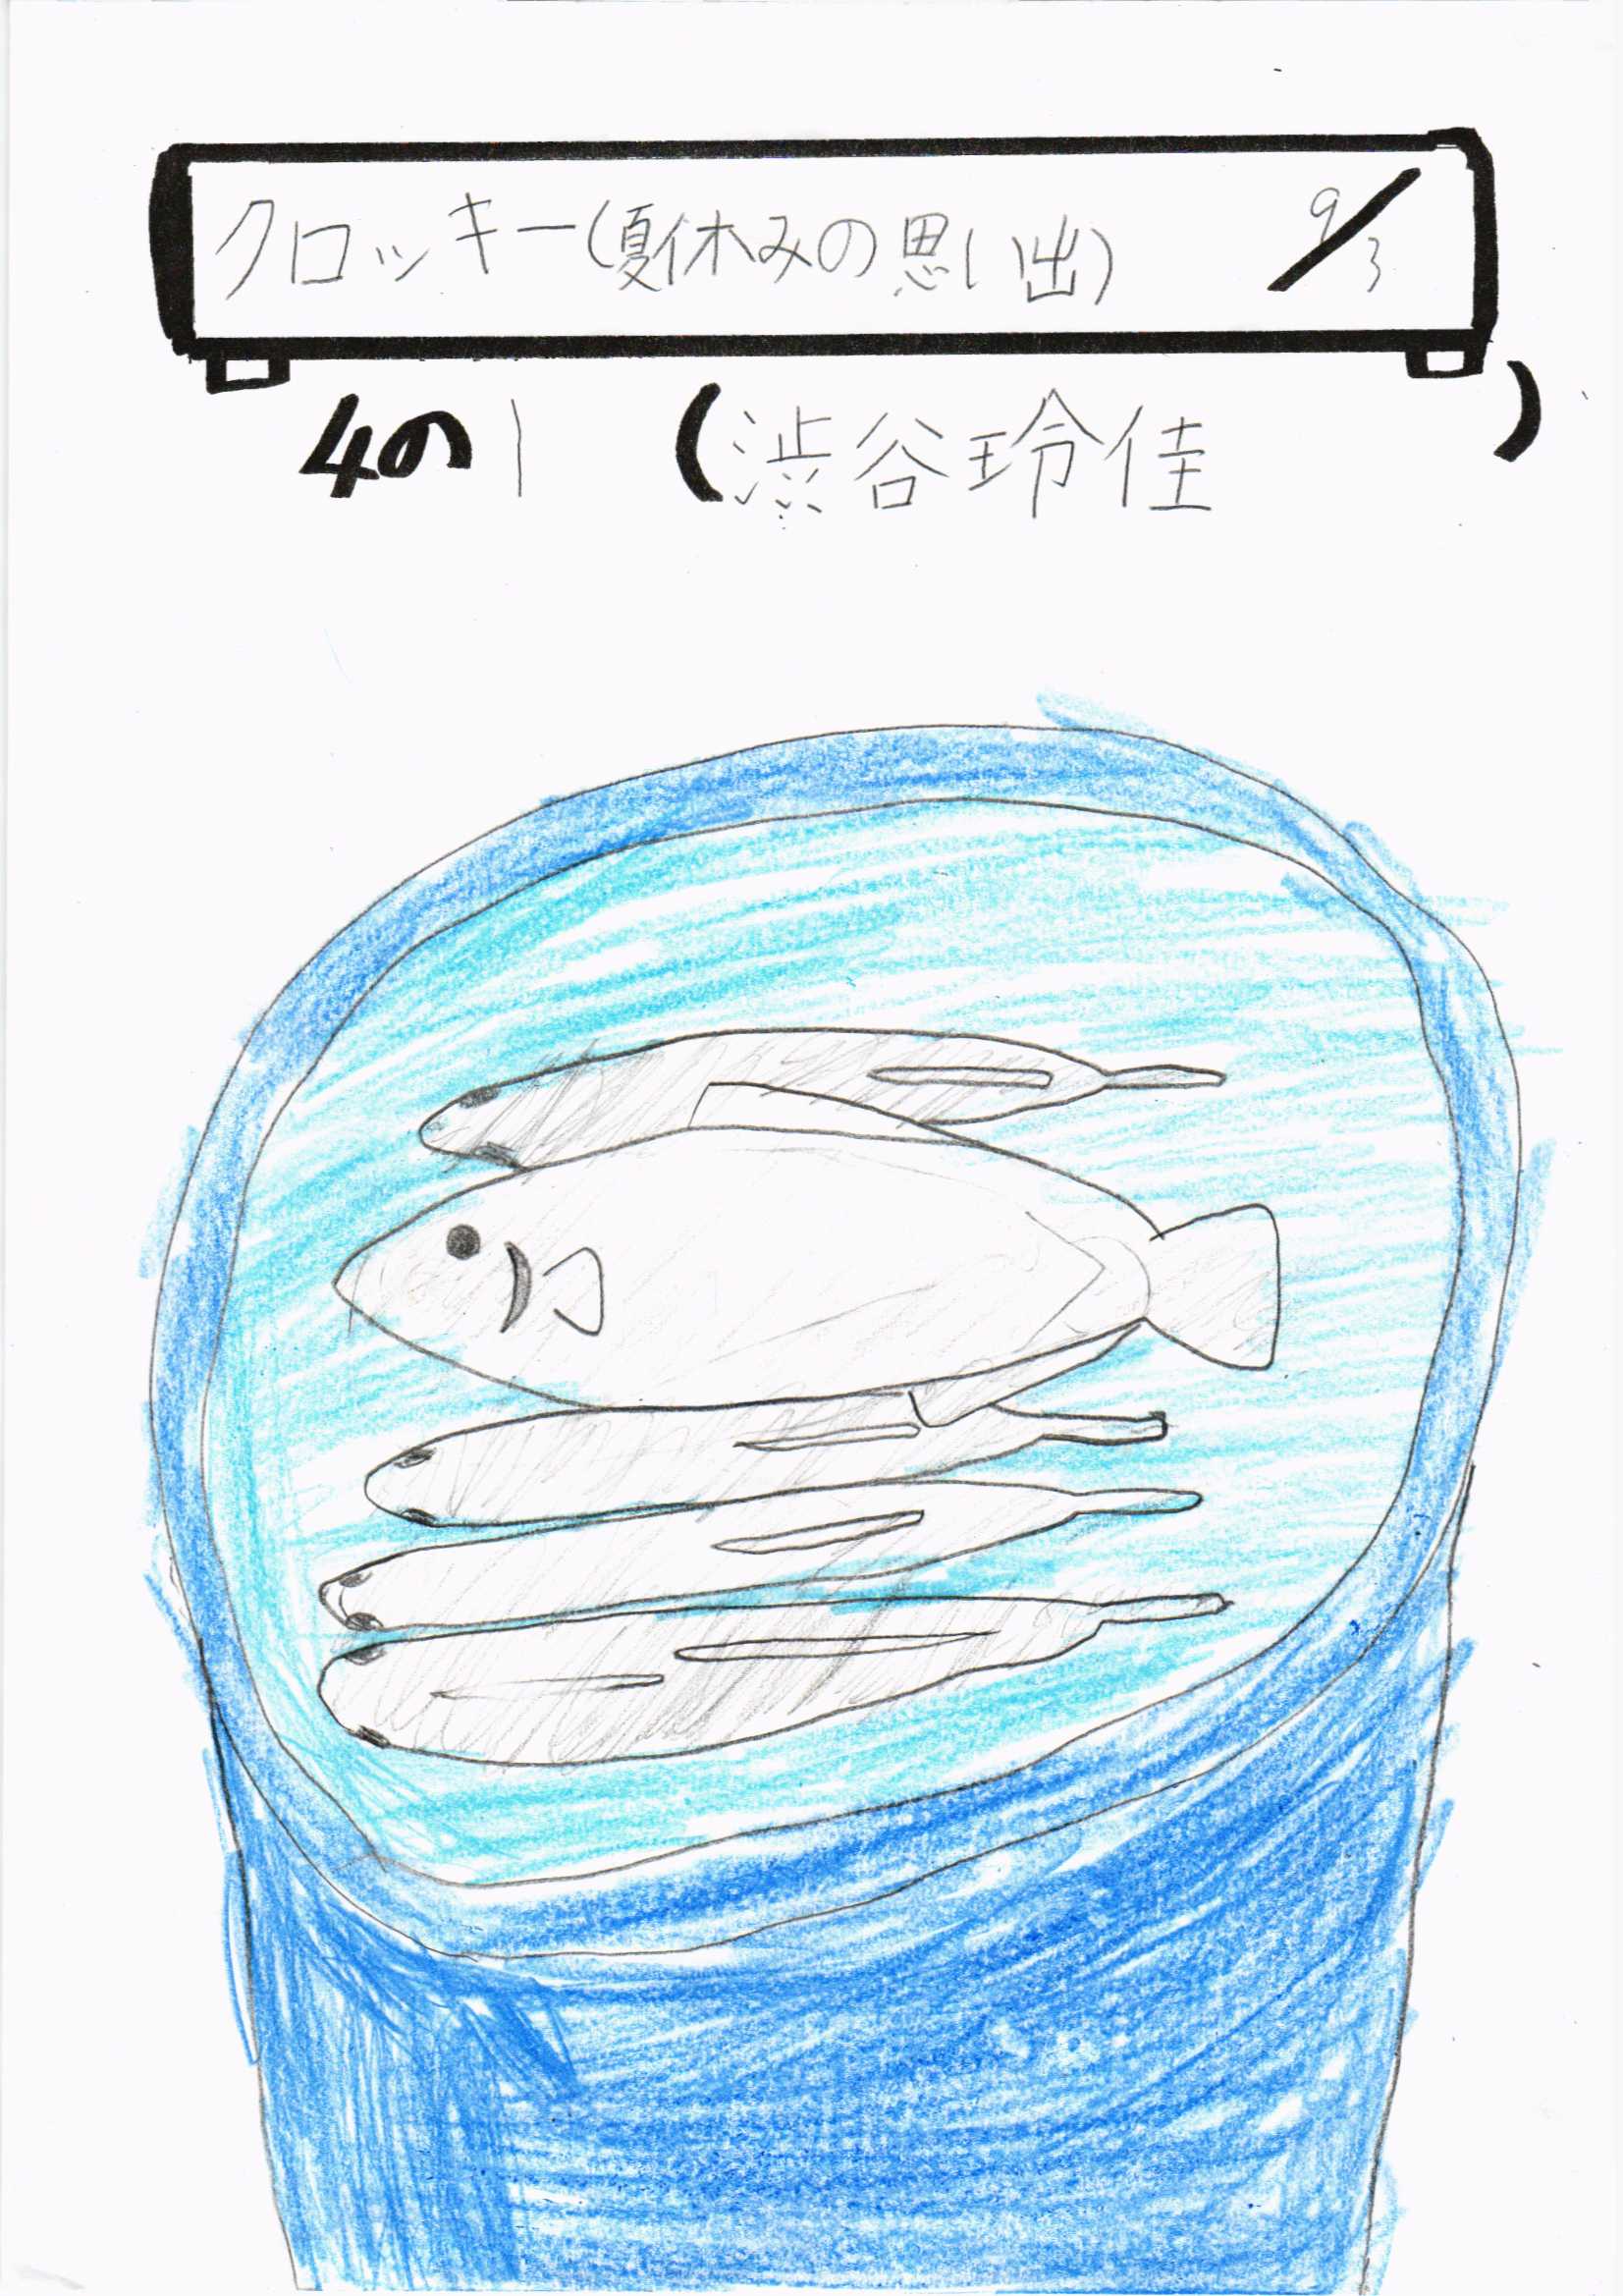 クロッキー(夏休みの思い出) 9/3
4の1 (渋谷玲佳)